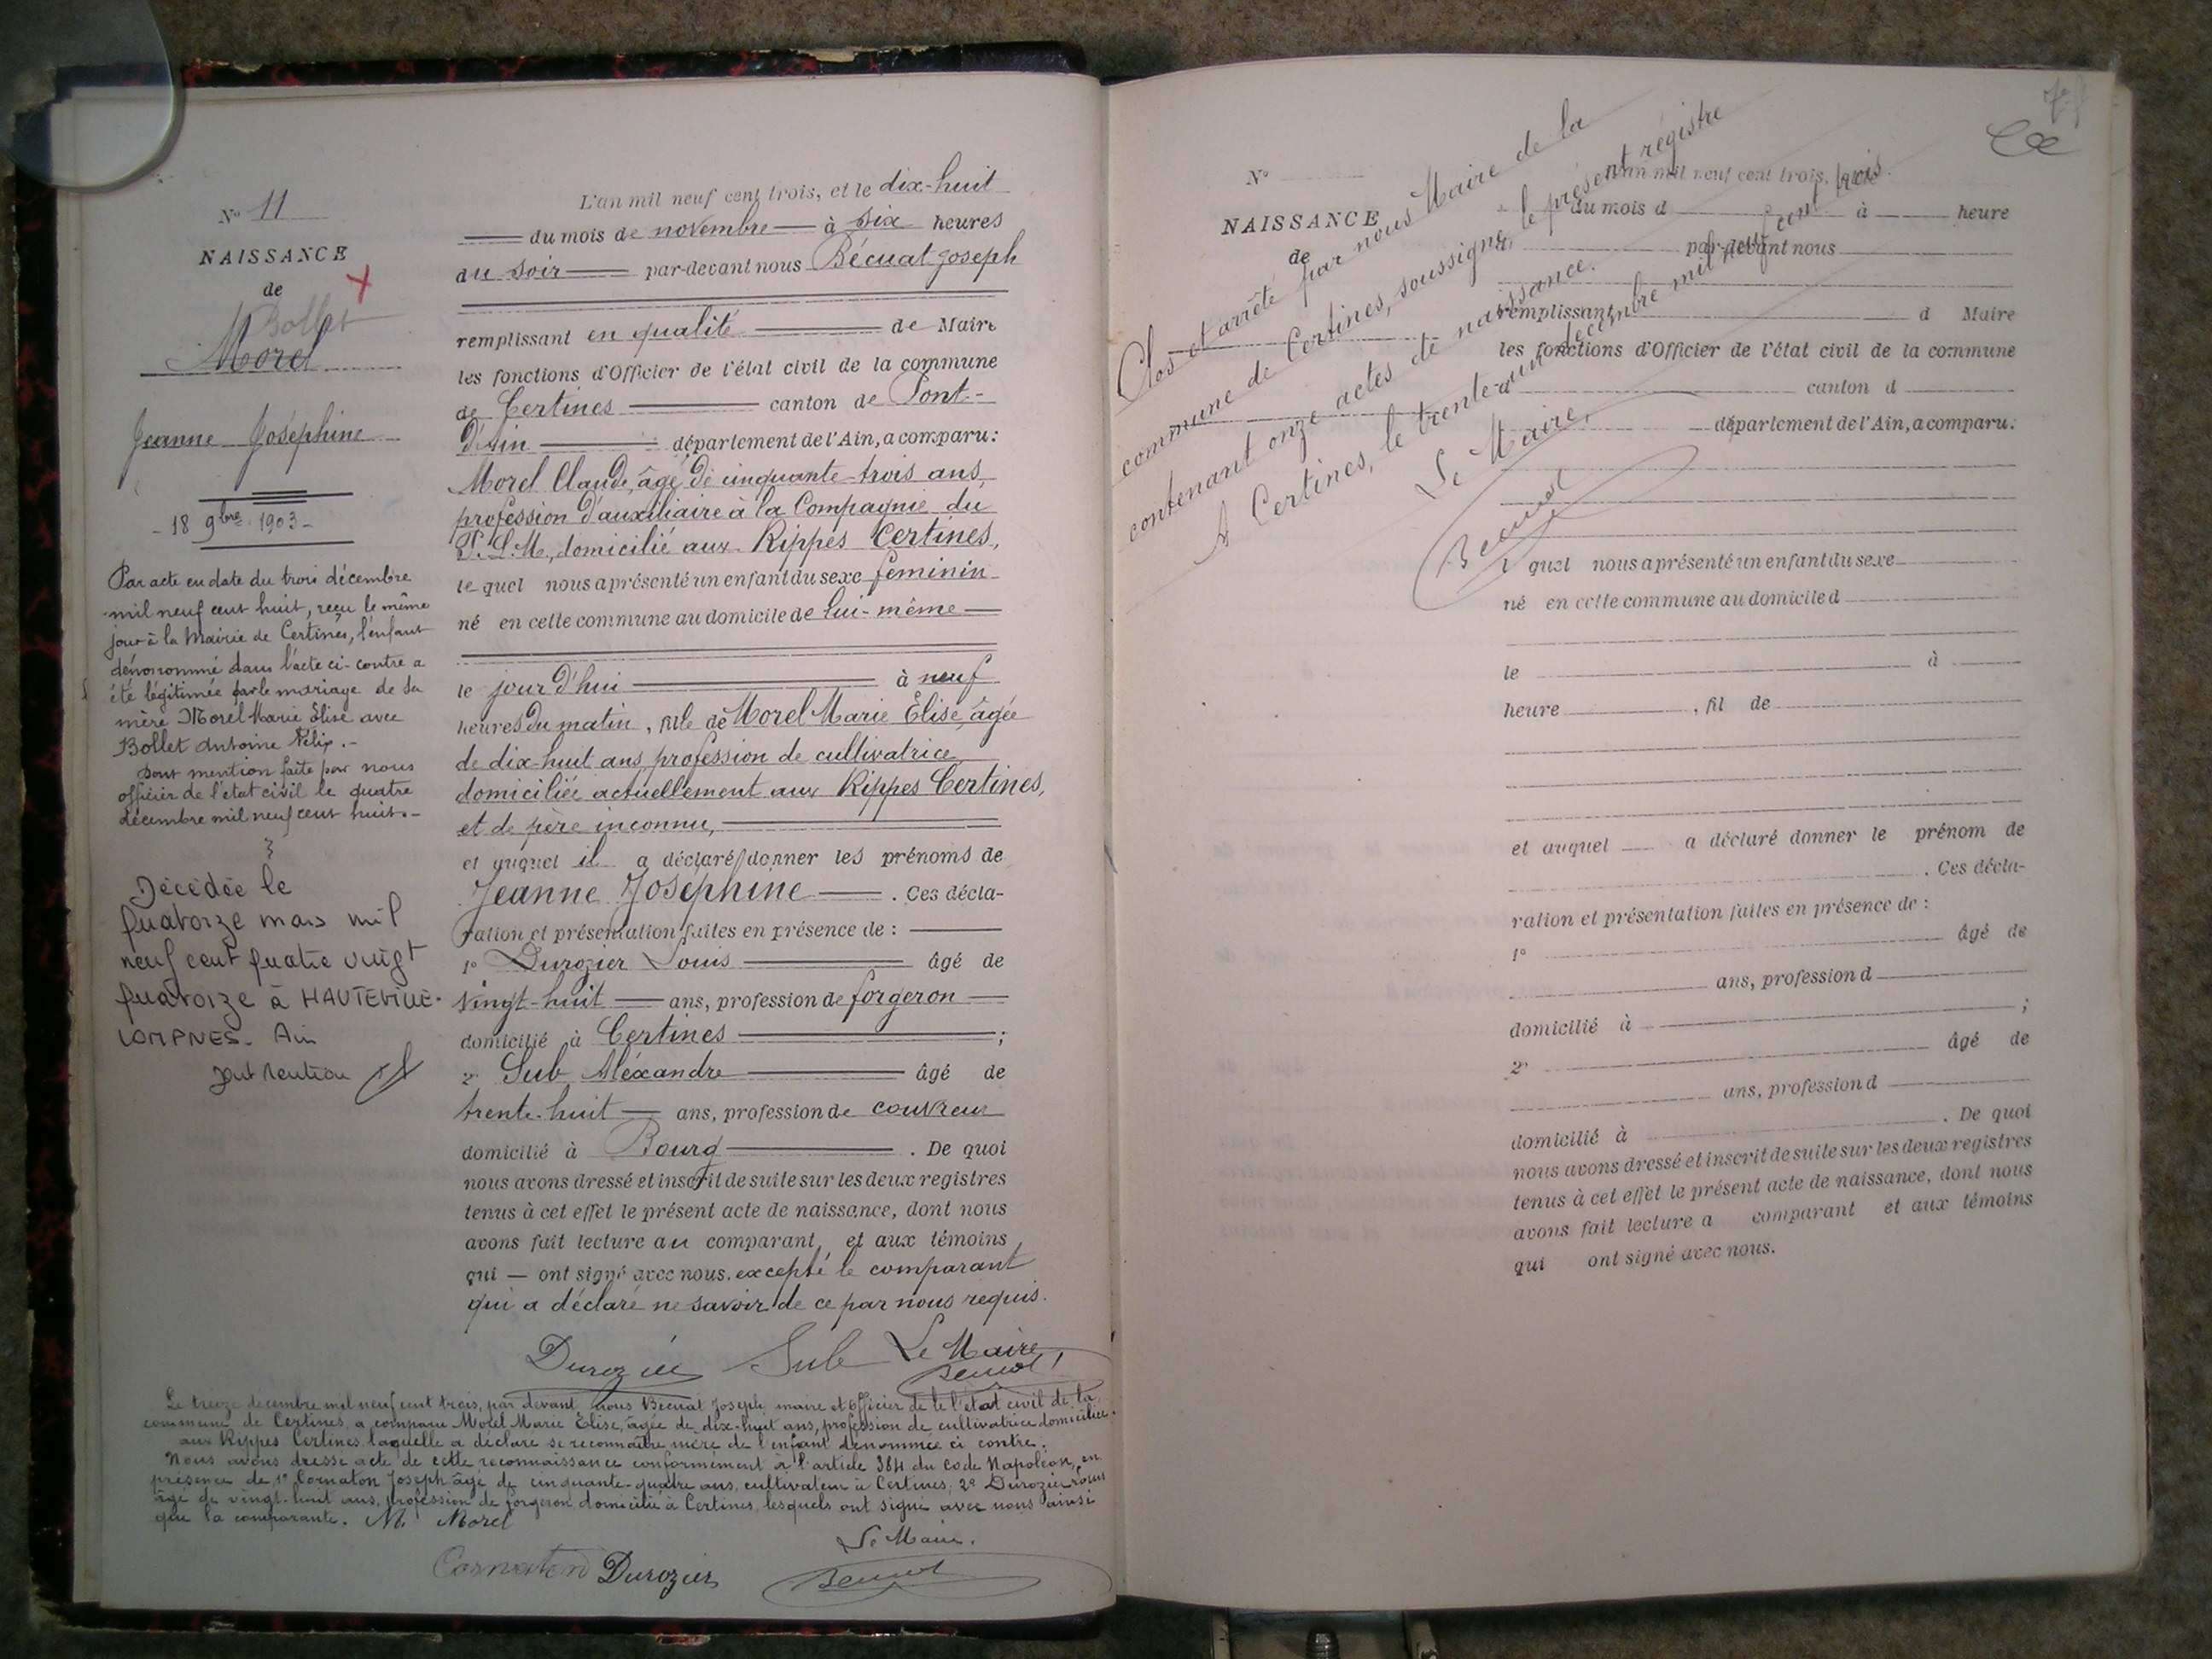 N° 11
NAISSANCE
de
Bollet
Morel
Jeanne Joséphine
- 18 9bre 1903 -
Par acte en date du trois décembre
mil neuf cent huit, reçu le même
jour à la Mairie de Certines, l'enfant
dénommé dans l'acte ci-contre a
été légitimée par le mariage de sa
mère Morel Marie Élise avec
Bollet Antoine Félix.-
Dont mention faite par nous
officier de l'état civil le quatre
décembre mil neuf cent huit.-
Décédée le
quatorze mars mil
neuf cent quatre vingt
quatorze à HAUTEVILLE-
LOMPNES. Ain
dont mention
L'an mil neuf cent trois, et le dix-huit
du mois de novembre à six heures
du soir par-devant nous Bécuat Joseph
remplissant en qualité de Maire
les fonctions d'Officier de l'état civil de la commune
de Certines canton de Pont-
d'Ain département de l'Ain, a comparu:
Morel Claude, âgé de cinquante-trois ans,
profession d'auxiliaire à la Compagnie du
P.L.M., domicilié aux Rippes Certines,
lequel nous a présenté un enfant du sexe féminin
né en cette commune au domicile de lui-même
le jour d'hui à neuf
heures du matin, fille de Morel Marie Élise, âgée
de dix-huit ans profession de cultivatrice,
domiciliée actuellement aux Rippes Certines,
et de père inconnu,
et auquel il a déclaré donner les prénoms de
Jeanne Joséphine . Ces décla-
ration et présentation faites en présence de :
1° Durozier Louis âgé de
vingt-huit ans, profession de forgeron
domicilié à Certines ;
2° Sub Aléxandre âgé de
trente-huit ans, profession de couvreur
domicilié à Bourg . De quoi
nous avons dressé et inscrit de suite sur les deux registres
tenus à cet effet le présent acte de naissance, dont nous
avons fait lecture au comparant et aux témoins
qui — ont signé avec nous. excepté le comparant
qui a déclaré ne savoir de ce par nous requis.
Durozier Sub Le Maire
Bécuat
Le treize décembre mil neuf cent trois, par devant nous Bécuat Joseph, maire et Officier de l'état civil de la
commune de Certines, a comparu Morel Marie Élise, âgée de dix-huit ans, profession de cultivatrice domiciliée
aux Rippes Certines, laquelle a déclaré se reconnaître mère de l'enfant dénommée ci contre.
Nous avons dressé acte de cette reconnaissance conformément à l'article 384 du code Napoléon, en
présence de 1° Cornaton Joseph âgé de cinquante-quatre ans, cultivateur à Certines, 2° Durozier Louis
âgé de vingt-huit ans, profession de forgeron domicilié à Certines, lesquels ont signé avec nous ainsi
que la comparante. M. Morel
Le Maire.
Cornaton Durozier Bécuat
Clos et arrêté par nous Maire de la
commune de Certines, soussigné, le présent régistre
contenant onze actes de naissance.
A Certines, le trente-un décembre mil neuf cent trois.
Le Maire,
Bécuat
N°
NAISSANCE
de
L'an mil neuf cent trois,
du mois d à heure
par-devant nous
remplissant d Maire
les fonctions d'Officier de l'état civil de la commune
d canton d
département de l'Ain, a comparu:
l quel nous a présenté un enfant du sexe
né en cette commune au domicile d
le à
heure , fil de
et auquel a déclaré donner le prénom de
. Ces décla-
ration et présentation faites en présence de :
1° âgé de
ans, profession d
domicilié à ;
2° âgé de
ans, profession d
domicilié à . De quoi
nous avons dressé et inscrit de suite sur les deux registres
tenus à cet effet le présent acte de naissance, dont nous
avons fait lecture a comparant et aux témoins
qui ont signé avec nous.